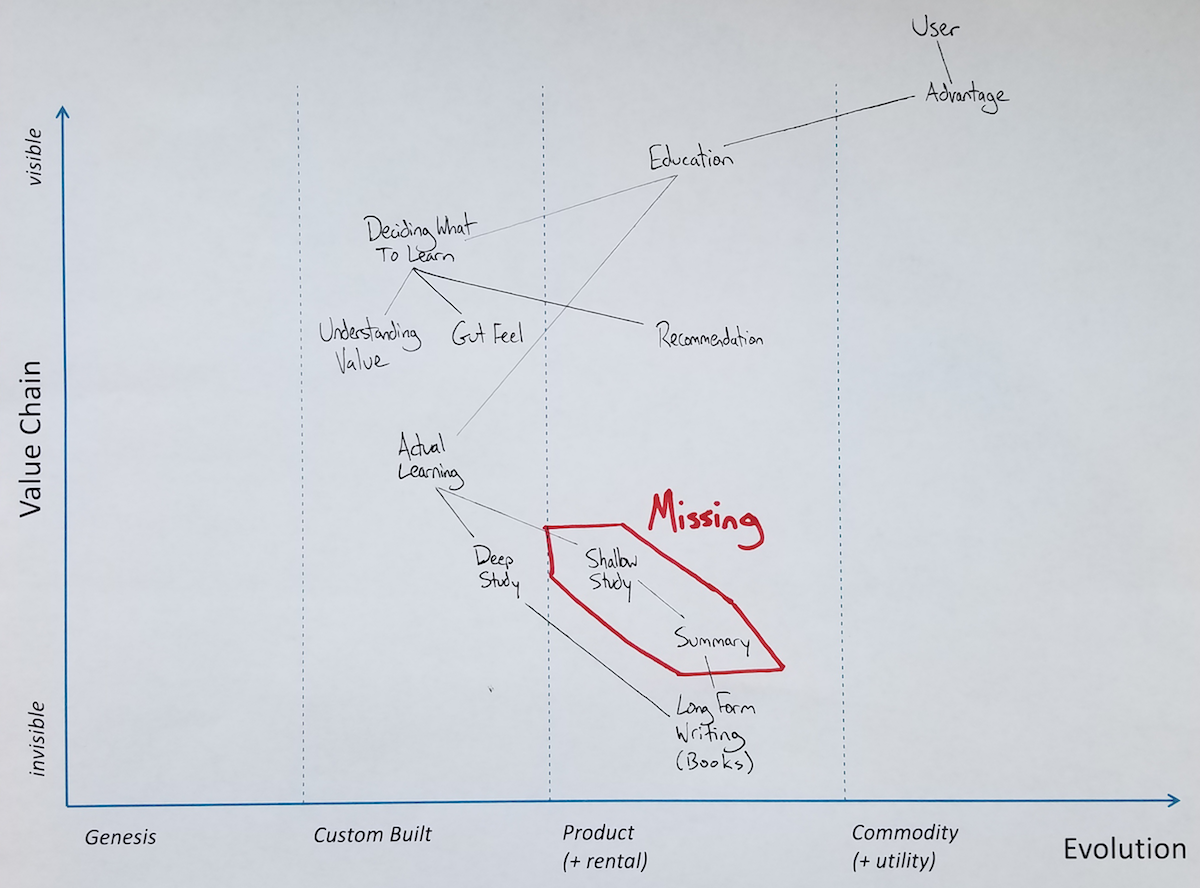 User
Advantage
visible
Education
Deciding What
To Learn
Understanding
Value
Gut Feel
Recommendation
Value Chain
Actual
Learning
Missing
Deep
Study
Shallow
Study
Summary
Long Form
Writing
(Books)
invisible
Genesis
Custom Built
Product
(+ rental)
Commodity
(+ utility)
Evolution